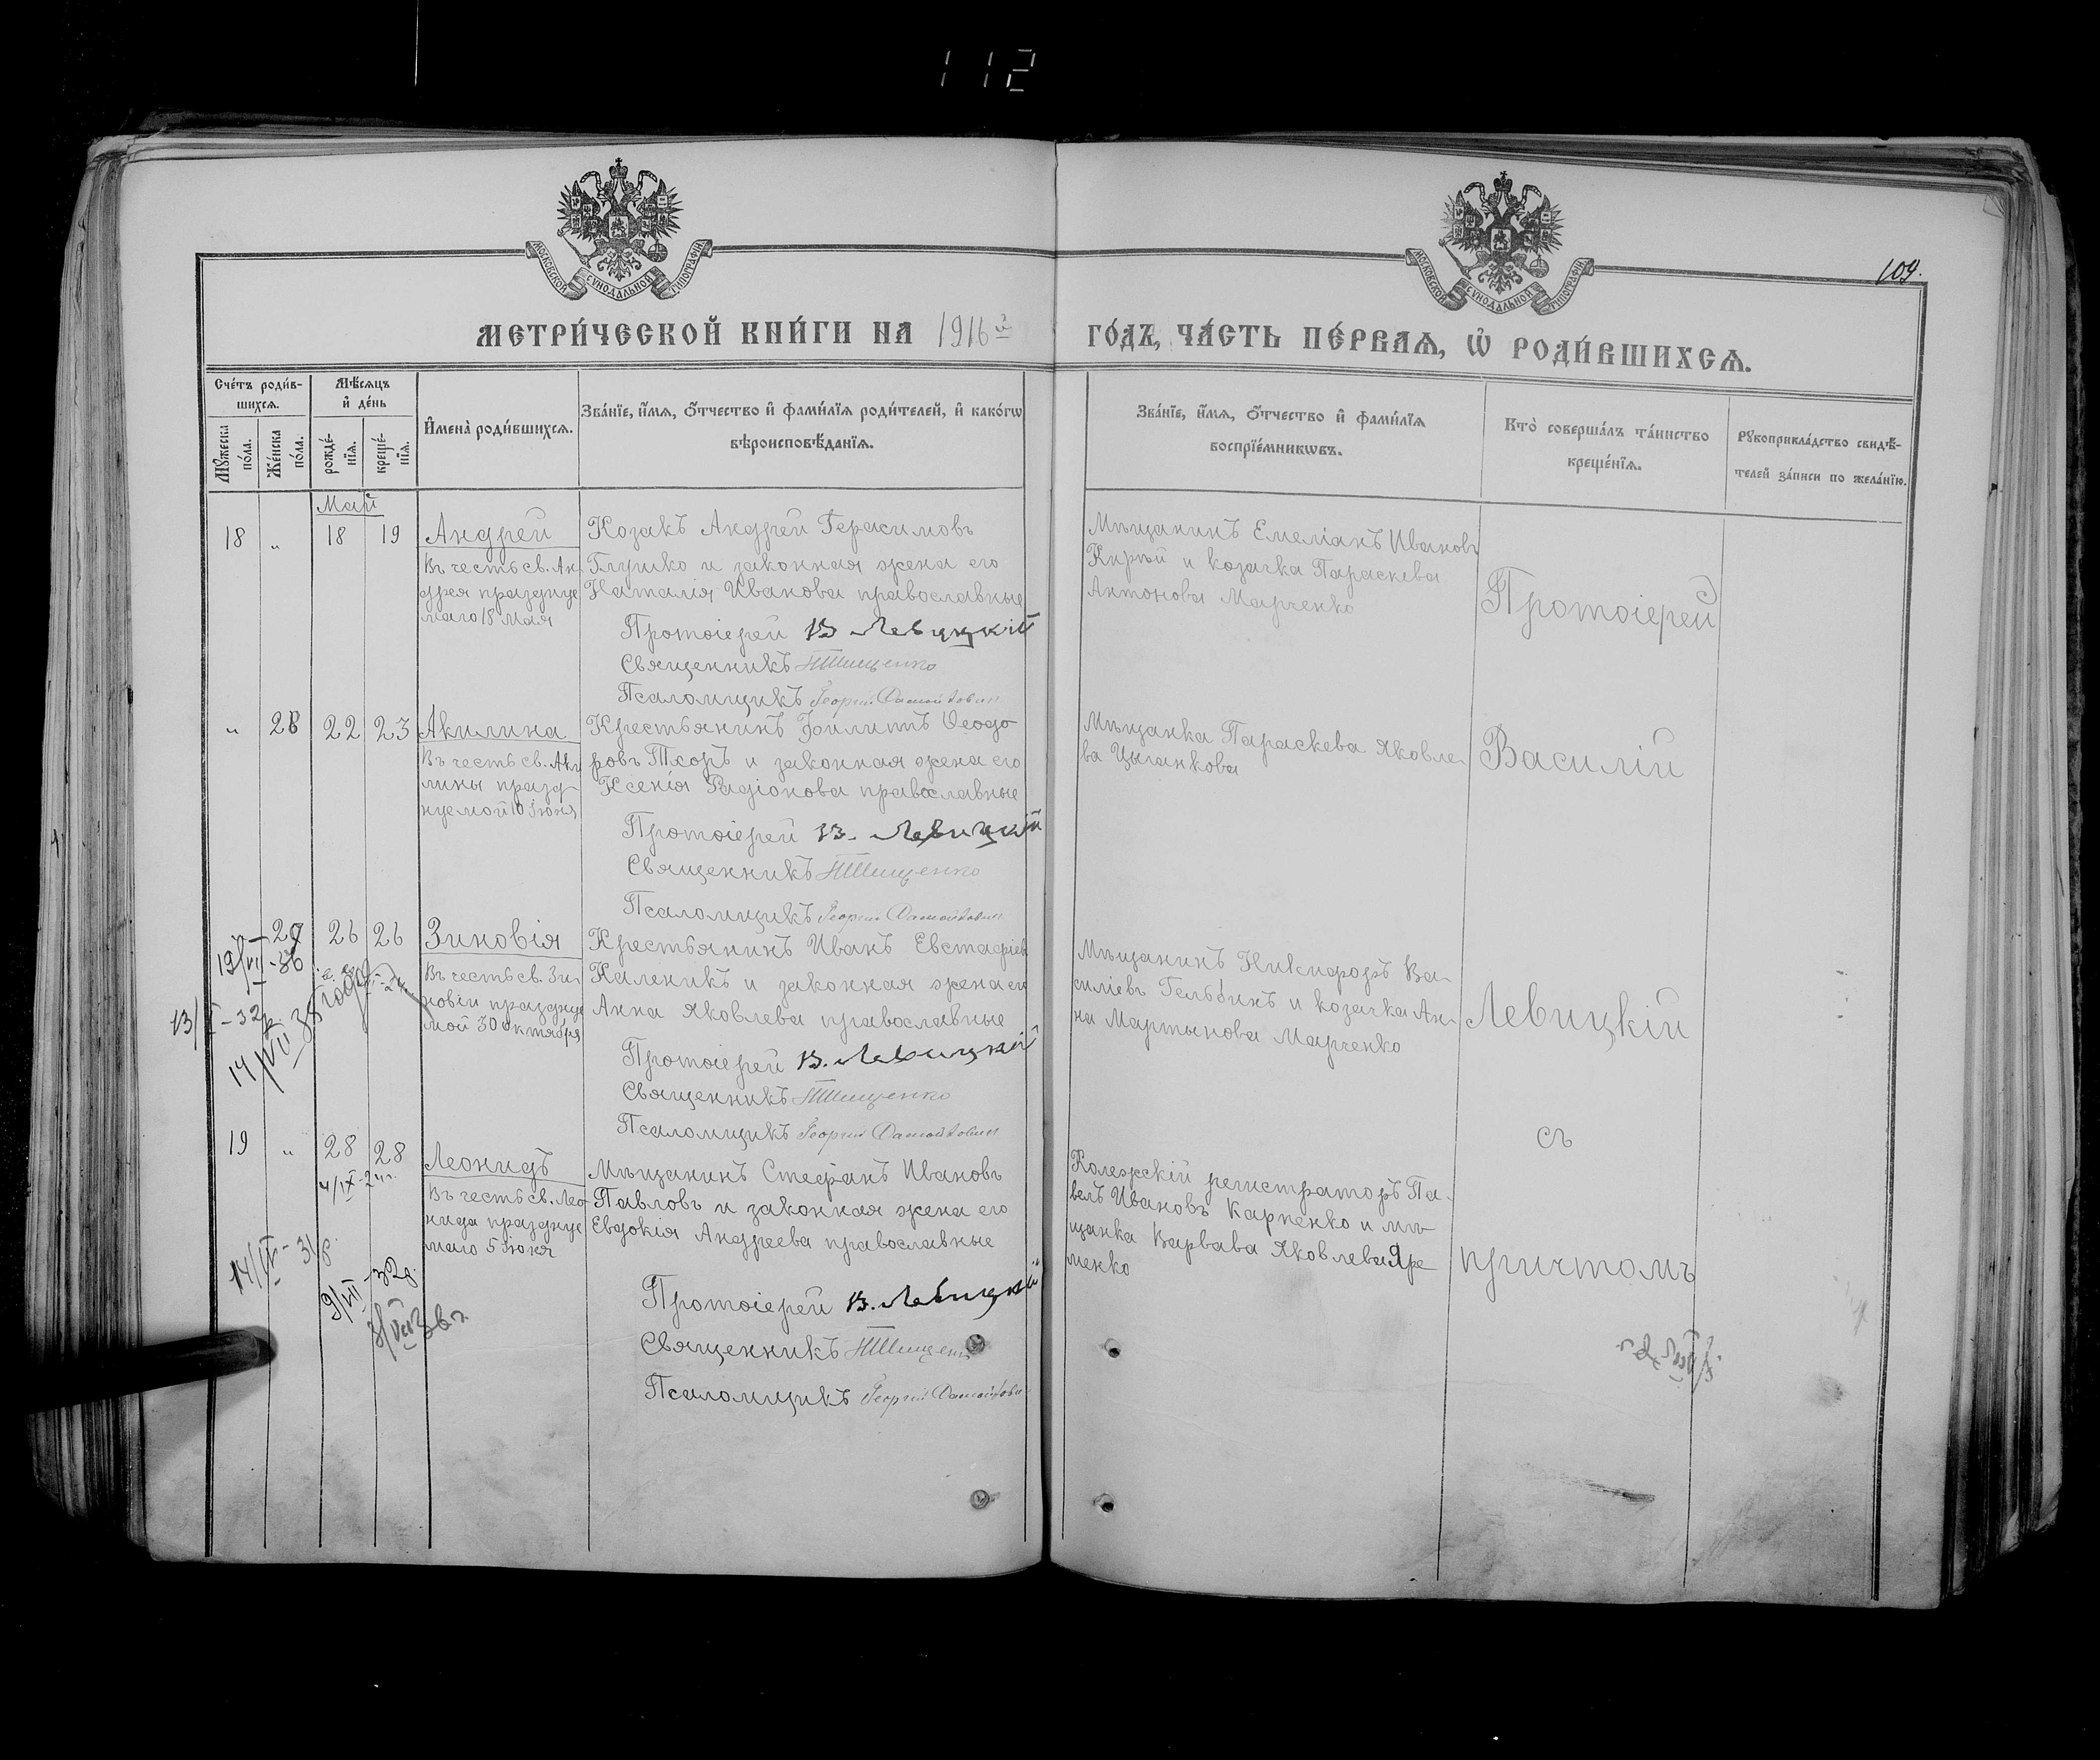 112
МОСКОВСКОЙ СѴНОДАЛЬНОЙ ТИПОГРАФІИ
МОСКОВСКОЙ СѴНОДАЛЬНОЙ ТИПОГРАФІИ
109.
МЕТРИ́ЧЕСКОЙ КНИ́ГИ НА 1916й
ГО́ДЪ, ЧА́СТЬ ПЕ́РВАѦ, Ѡ҆ РОДИ́ВШИХСѦ.
Сче́тъ роди́в-
шихсѧ.
Мѣ́сѧцъ
и҆ де́нь
Мꙋ́жеска
по́ла.
Же́нска
по́ла.
рожде́-
нїѧ.
креще́-
нїѧ.
И҆мена̀ роди́вшихсѧ.
Зва́нїе, и҆́мѧ, ѻ҆́тчество и҆ фами́лїѧ роди́телей, и҆ како́гѡ
вѣроисповѣ́данїѧ.
Зва́нїе, и҆́мѧ, ѻ҆́тчество и҆ фами́лїѧ
воспрїе́мникѡвъ.
Кто̀ соверша́лъ та́инство
креще́нїѧ.
Рꙋкоприкла́дство свидѣ́-
телей за́писи по жела́нїю.
Май
18 " 18 19 Андрей
Въ честь св. Ан-
дрея празднуе
маго 18 Мая
Козакъ Андрей Герасимовъ
Глушко и законная жена его
Наталія Иванова православные
Протоіерей В Левицкій
Священникъ Н Тищенко
Псаломщикъ Георгій
Мѣщанинъ Емеліанъ Ивановъ
Кирѣй и козачка Параскева
Антонова Марченко
Протоіерей
" 28 22 23 Акилина
Въ честь св. Аки
лины празд-
нуемой 10 Іюня
Крестьянинъ Филиппъ Ѳеодо
ровъ Тхоръ и законная жена его
Ксенія Радіонова православные
Протоіерей В. Левицкій
Священникъ Н Тищенко
Псаломщикъ Георгій
Мѣщанка Параскева Яковле-
ва Цыганкова
Василій
29 26 26 Зиновія
Въ честь св. Зи-
новіи празднуе
мой 30 октября
Крестьянинъ Иванъ Евстафіевъ
Каленикъ и законная жена его
Анна Яковлева православные
Протоіерей В. Левицкій
Священникъ Н Тищенко
Псаломщикъ Георгій
19/VII-36
13/I-32р.
14/VII 38 года
Мѣщанинъ Никифоръ Ва-
силіевъ Гельбинъ и козачка Ан-
на Мартынова Марченко
Левицкій
19 " 28 28 Леонидъ
4/IX-24г.
Въ честь св. Лео
нида празднуе
маго 5 Іюня
Мѣщанинъ Стефанъ Ивановъ
Павловъ и законная жена его
Евдокія Андреева православные
Протоіерей В. Левицкій
Священникъ Н Тищенко
Псаломщикъ Георгій
14/IX-31р.
9/VII-32р.
Колежскій регистраторъ Па-
велъ Ивановъ Карпенко и мѣ-
щанка Варвава Яковлева Яре
менко
съ
причтомъ